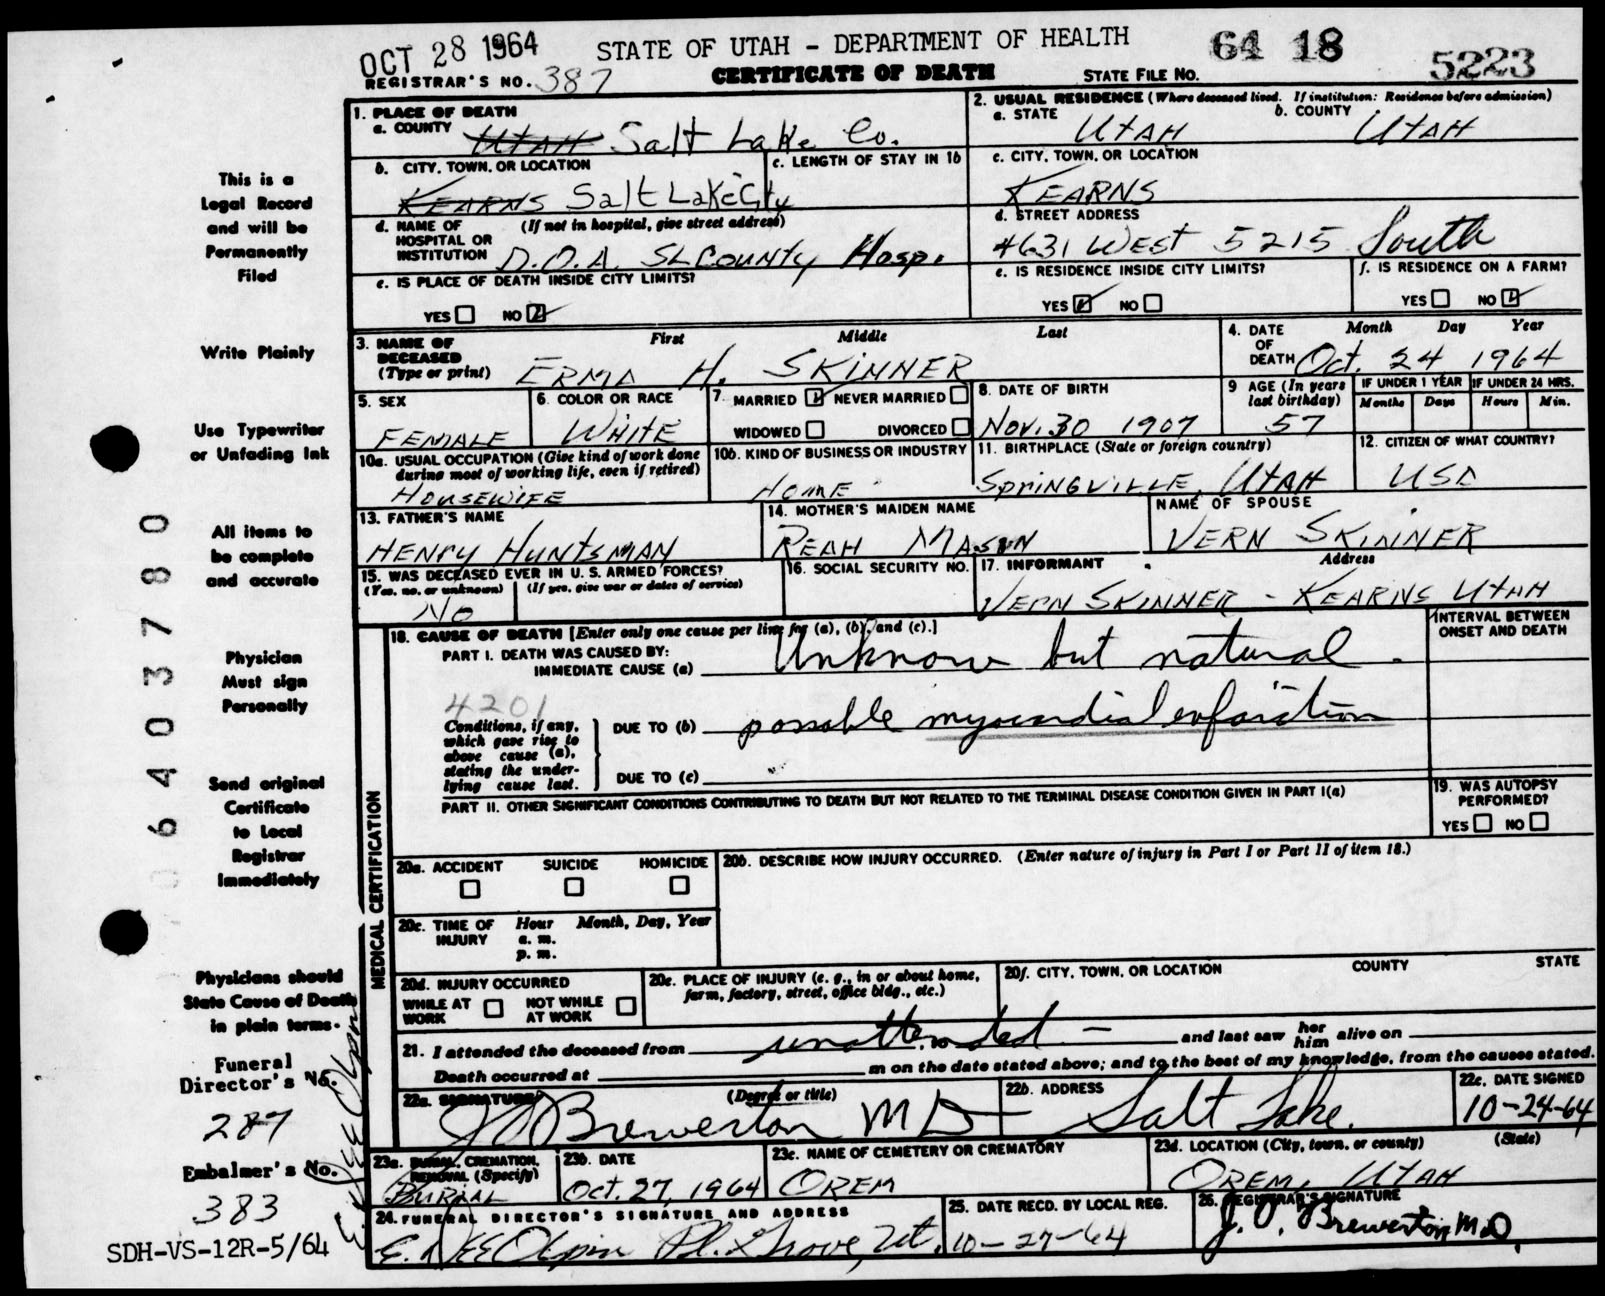 OCT 28 1964 STATE OF UTAH - DEPARTMENT OF HEALTH 64 18 5223
REGISTRAR'S NO. 387 CERTIFICATE OF DEATH STATE FILE NO.
1. PLACE OF DEATH
a. COUNTY Utah Salt Lake Co.
2. USUAL RESIDENCE (Where deceased lived. If institution: Residence before admission)
a. STATE UtAH b. COUNTY UtAH
b. CITY, TOWN, OR LOCATION KEARNS Salt Lake City
c. LENGTH OF STAY IN 1b
c. CITY, TOWN, OR LOCATION
KEARNS
d. NAME OF HOSPITAL OR INSTITUTION (If not in hospital, give street address)
D.O.A. SL County Hosp.
d. STREET ADDRESS
4631 WEST 5215 South
e. IS PLACE OF DEATH INSIDE CITY LIMITS?
YES NO
e. IS RESIDENCE INSIDE CITY LIMITS?
YES NO
f. IS RESIDENCE ON A FARM?
YES NO
3. NAME OF DECEASED (Type or print) First Middle Last
ERMA H. SKINNER
4. DATE OF DEATH Month Day Year
Oct. 24 1964
5. SEX
FEMALE
6. COLOR OR RACE
WHITE
7. MARRIED NEVER MARRIED
WIDOWED DIVORCED
8. DATE OF BIRTH
Nov. 30 1907
9 AGE (In years last birthday)
57
IF UNDER 1 YEAR IF UNDER 24 HRS.
Months Days Hours Min.
10a. USUAL OCCUPATION (Give kind of work done during most of working life, even if retired)
HOUSEWIFE
10b. KIND OF BUSINESS OR INDUSTRY
HOME
11. BIRTHPLACE (State or foreign country)
SPRINGVILLE, UTAH
12. CITIZEN OF WHAT COUNTRY?
USA
13. FATHER'S NAME
HENRY HUNTSMAN
14. MOTHER'S MAIDEN NAME
REAH MASON
NAME OF SPOUSE
VERN SKINNER
15. WAS DECEASED EVER IN U. S. ARMED FORCES?
(Yes, no, or unknown) (If yes, give war or dates of service)
NO
16. SOCIAL SECURITY NO.
17. INFORMANT Address
VERN SKINNER - KEARNS UTAH
MEDICAL CERTIFICATION
18. CAUSE OF DEATH [Enter only one cause per line for (a), (b), and (c).]
INTERVAL BETWEEN ONSET AND DEATH
PART I. DEATH WAS CAUSED BY:
IMMEDIATE CAUSE (a) Unknown but natural.
4201
Conditions, if any, which gave rise to above cause (a), stating the underlying cause last.
DUE TO (b) possable myocardial infarction
DUE TO (c)
PART II. OTHER SIGNIFICANT CONDITIONS CONTRIBUTING TO DEATH BUT NOT RELATED TO THE TERMINAL DISEASE CONDITION GIVEN IN PART I(a)
19. WAS AUTOPSY PERFORMED?
YES NO
20a. ACCIDENT SUICIDE HOMICIDE
20b. DESCRIBE HOW INJURY OCCURRED. (Enter nature of injury in Part I or Part II of item 18.)
20c. TIME OF INJURY Hour Month, Day, Year
a. m.
p. m.
20d. INJURY OCCURRED
WHILE AT WORK NOT WHILE AT WORK
20e. PLACE OF INJURY (e. g., in or about home, farm, factory, street, office bldg., etc.)
20f. CITY, TOWN, OR LOCATION COUNTY STATE
21. I attended the deceased from unattended - and last saw her him alive on
Death occurred at m on the date stated above; and to the best of my knowledge, from the causes stated.
22a. SIGNATURE (Degree or title)
J O Brewerton MD
22b. ADDRESS
Salt Lake.
22c. DATE SIGNED
10-24-64
23a. BURIAL, CREMATION, REMOVAL (Specify)
BURIAL
23b. DATE
Oct. 27, 1964
23c. NAME OF CEMETERY OR CREMATORY
OREM
23d. LOCATION (City, town, or county) (State)
OREM, UTAH
24. FUNERAL DIRECTOR'S SIGNATURE AND ADDRESS
E. DEE Olpin Pl. Grove, Ut.
25. DATE RECD. BY LOCAL REG.
10-27-64
26. REGISTRAR'S SIGNATURE
J. O. Brewerton M.D.
This is a
Legal Record
and will be
Permanently
Filed
Write Plainly
Use Typewriter
or Unfading Ink
All items to
be complete
and accurate
Physician
Must sign
Personally
Send original
Certificate
to Local
Registrar
Immediately
Physicians should
State Cause of Death
in plain terms.
Funeral
Director's No.
287
Embalmer's No.
383
E. DEE Olpin
SDH-VS-12R-5/64
0 6 4 0 3 7 8 0